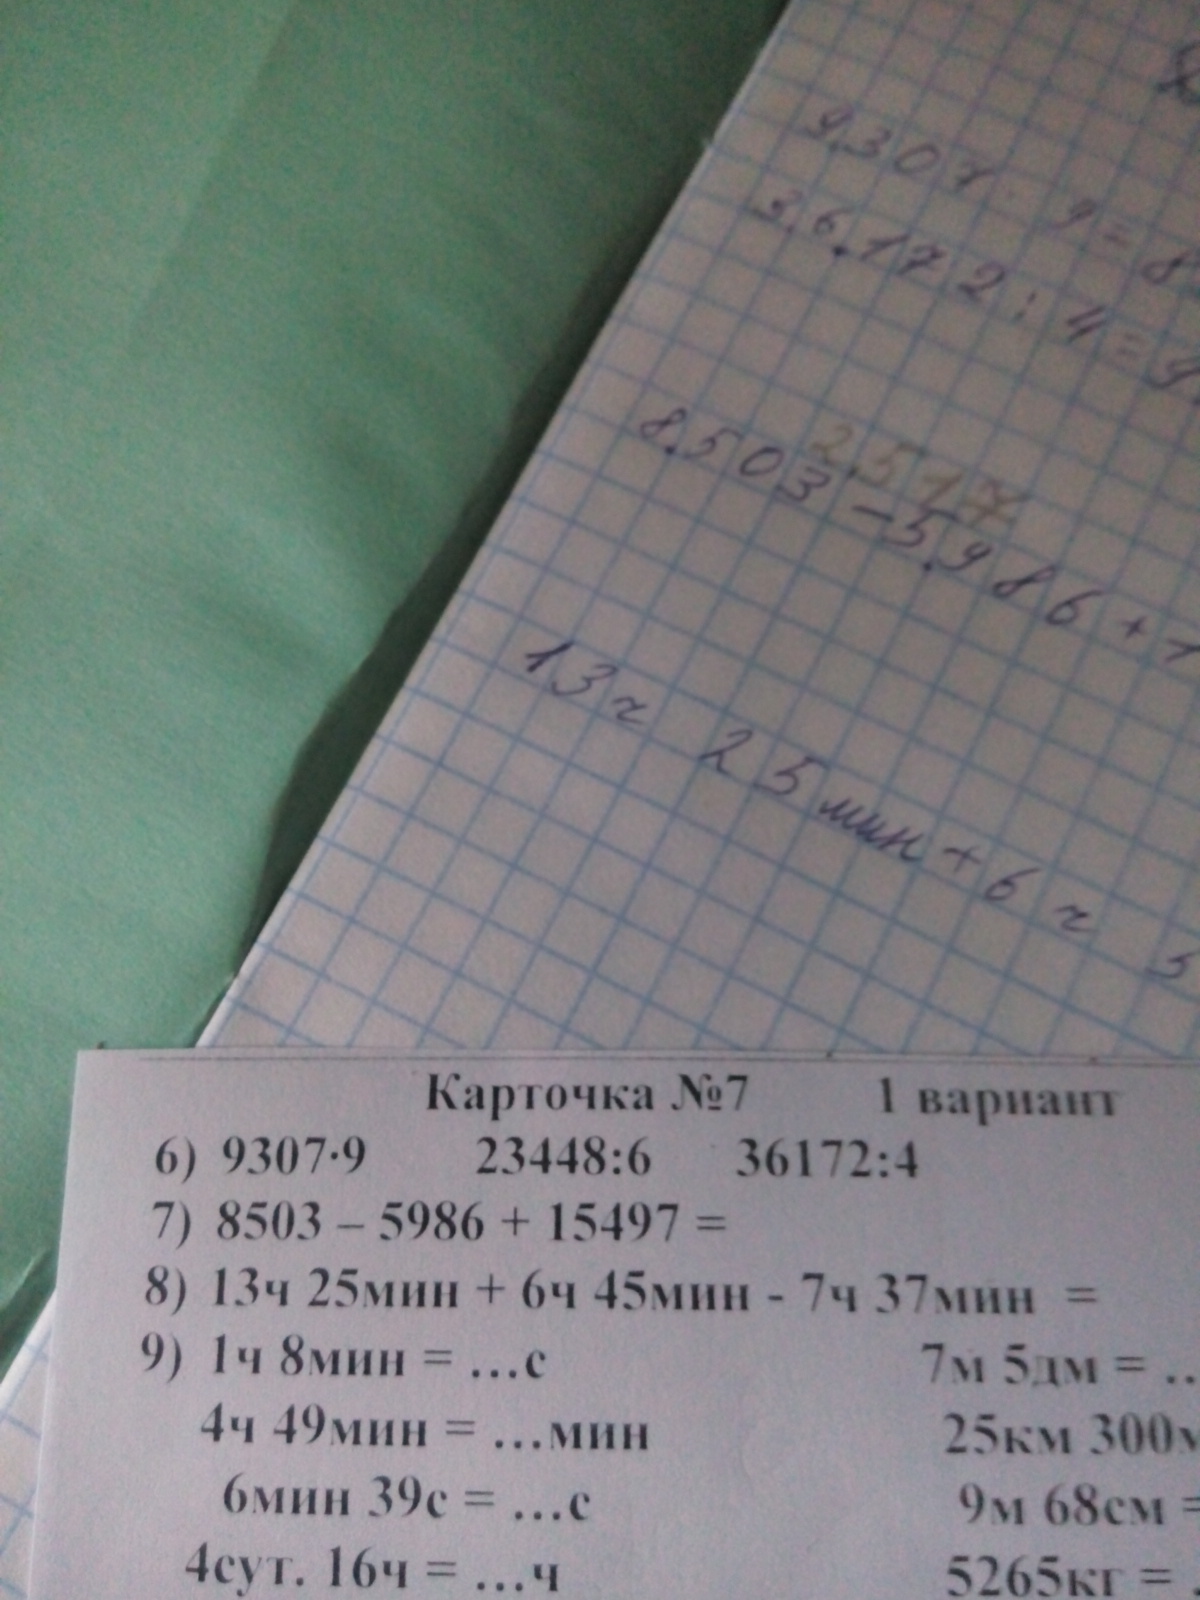 9307 · 9 = 8
36172 : 4 = 9
2517
8503 - 5986 + 1
13ч 25 мин + 6 ч 5
Карточка №7 1 вариант
6) 9307·9 23448:6 36172:4
7) 8503 – 5986 + 15497 =
8) 13ч 25мин + 6ч 45мин - 7ч 37мин =
9) 1ч 8мин = …с 7м 5дм = ..
4ч 49мин = …мин 25км 300м
6мин 39с = …с 9м 68см =
4сут. 16ч = …ч 5265кг = .